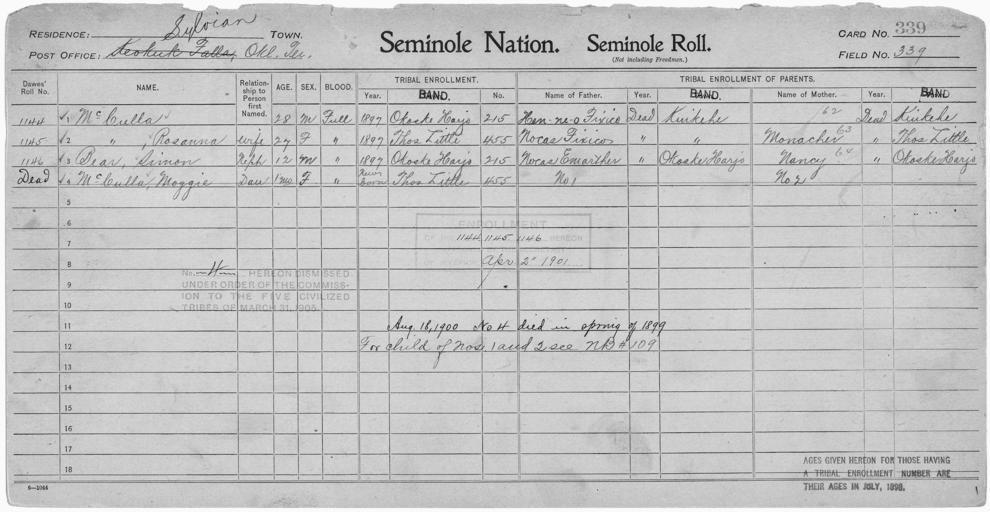 RESIDENCE: Sylvian TOWN.
POST OFFICE: Keokuk Falls, Okl. Ter.
Seminole Nation. Seminole Roll.
(Not including Freedmen.)
CARD NO. 339
FIELD NO. 339
Dawes' Roll No. NAME. Relationship to Person first Named. AGE. SEX. BLOOD. TRIBAL ENROLLMENT. TRIBAL ENROLLMENT OF PARENTS.
Year. BAND. No. Name of Father. Year. BAND. Name of Mother. Year. BAND
1144 1 McCulla 28 M Full 1897 Okoske Harjo 215 Hen-ne-o Fixico Dead Kinkehe 62 Dead Kinkehe
1145 2 " , Rosanna wife 27 F " 1897 Thos Little 455 Nocas Fixico " " Monachee 63 " Thos Little
1146 3 Bear, Simon Neph 12 M " 1897 Okoske Harjo 215 Nocas Emarther " Okoske Harjo Nancy 64 " Okoske Harjo
Dead 4 McCulla, Moggie Dau 1mo F " New Born Thos Little 455 No 1 No 2
5
6
ENROLLMENT
7
OF HEREON
1144, 1145, 1146
8
Apr 2" 1901
9
No. 4 HEREON DISMISSED
UNDER ORDER OF THE COMMISSION TO THE FIVE CIVILIZED
10
TRIBES OF MARCH 31, 1905.
11 Aug. 16, 1900 No 4 died in spring of 1899
12 For child of Nos. 1 and 2 see NB # 109
13
14
15
16
17
18
AGES GIVEN HEREON FOR THOSE HAVING
A TRIBAL ENROLLMENT NUMBER ARE
THEIR AGES IN JULY, 1898.
6—1044